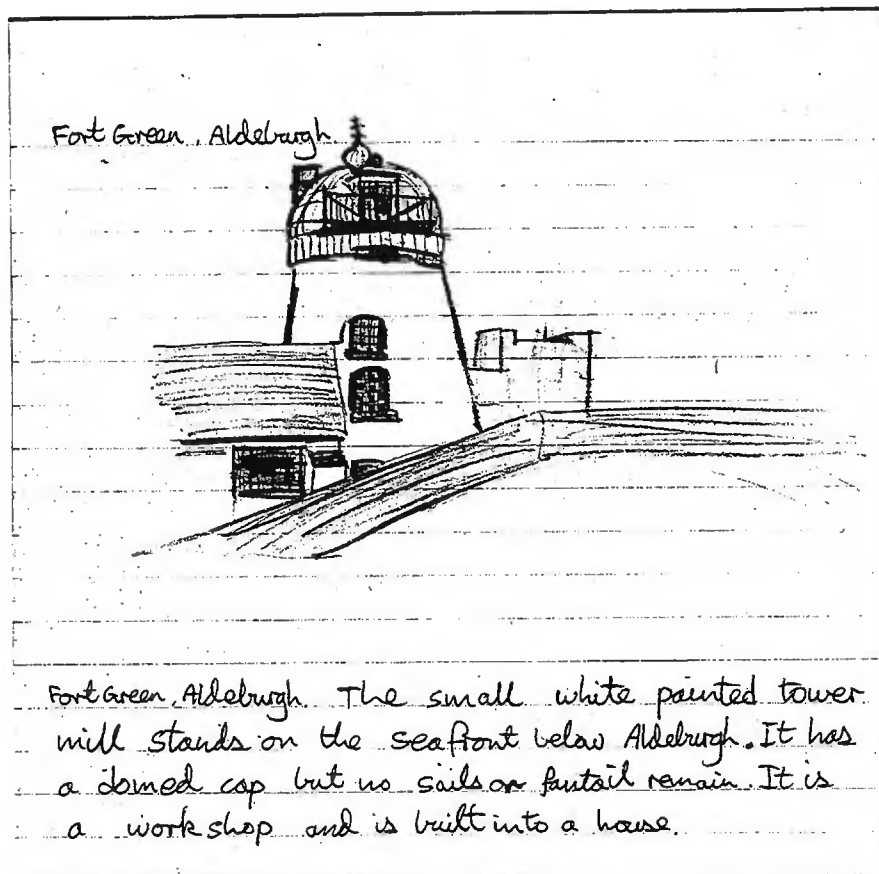 Fort Green, Aldeburgh
Fort Green, Aldeburgh. The small white painted tower
mill stands on the seafront below Aldeburgh. It has
a domed cap but no sails or fantail remain. It is
a workshop and is built into a house.